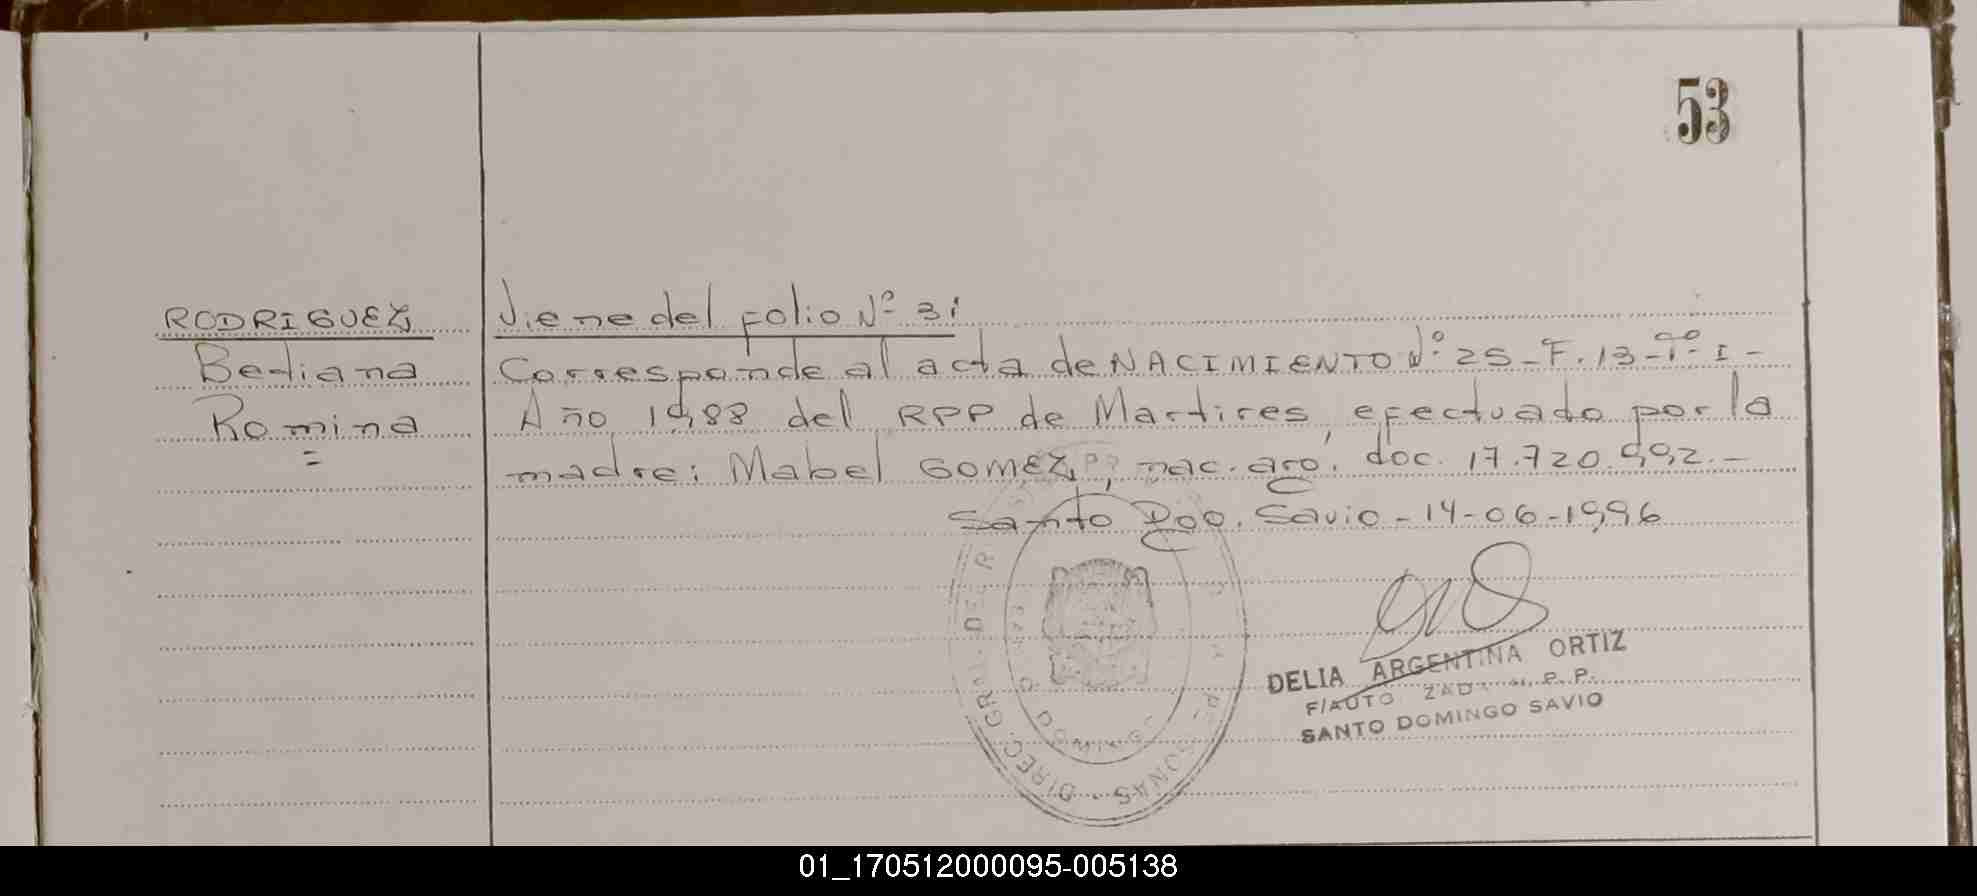 53
RODRIGUEZ Viene del folio Nº 31
Bediana Corresponde al acta de NACIMIENTO Nº 25-F.13-Tº I-
Romina Año 1988 del RPP de Martires, efectuado por la
= madre: Mabel GOMEZ, nac. arg. doc. 17.720.992.-
Santo Dgo. Savio - 14-06-1996
DELIA ARGENTINA ORTIZ
F/AUTO P. P.
SANTO DOMINGO SAVIO
DIREC. GRAL. DE R
01_170512000095-005138